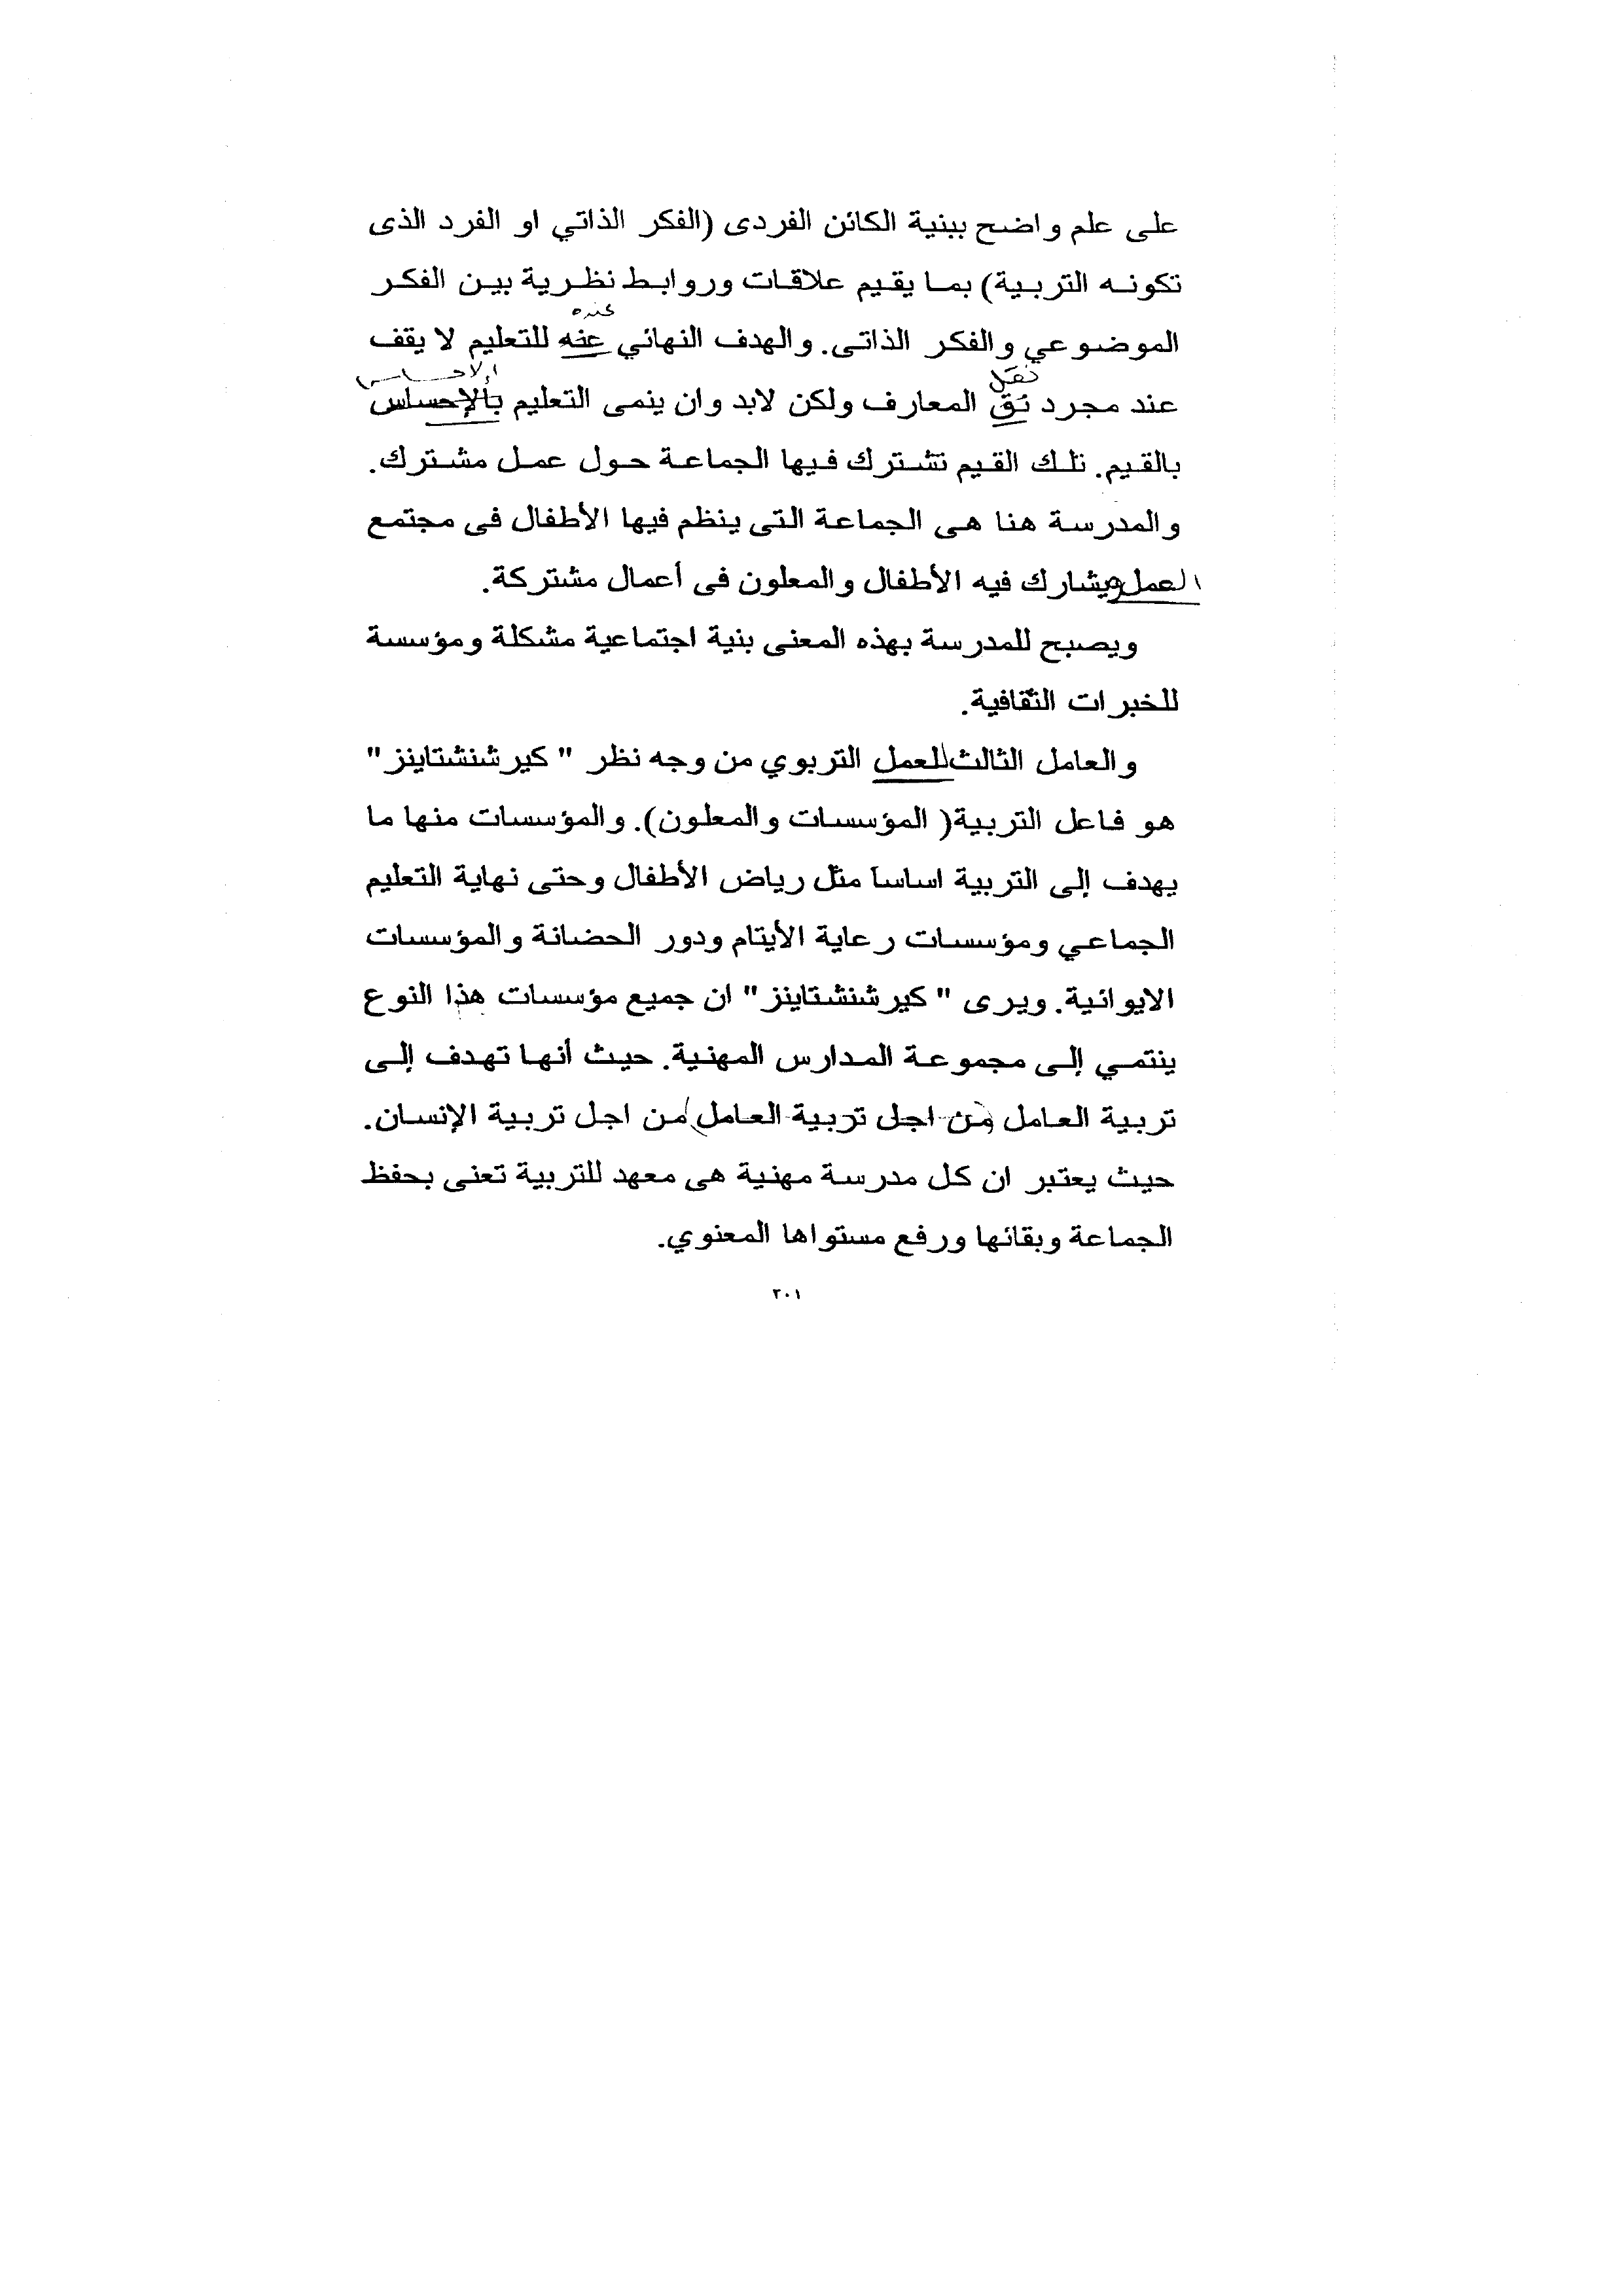 على علم واضح ببنية الكائن الفردى (الفكر الذاتي او الفرد الذى
تكونه التربية) بما يقيم علاقات وروابط نظرية بين الفكر
عنده
الموضوعي والفكر الذاتى. والهدف النهائي عنه للتعليم لا يقف
نقل الاحساس
عند مجرد نق المعارف ولكن لابد وان ينمى التعليم بالإحساس
بالقيم. تلك القيم تشترك فيها الجماعة حول عمل مشترك.
والمدرسة هنا هى الجماعة التى ينظم فيها الأطفال فى مجتمع
العمل ويشارك فيه الأطفال والمعلون فى أعمال مشتركة.
ويصبح للمدرسة بهذه المعنى بنية اجتماعية مشكلة ومؤسسة
للخبرات الثقافية.
والعامل الثالث للعمل التربوي من وجه نظر " كيرشنشتاينز"
هو فاعل التربية( المؤسسات والمعلون). والمؤسسات منها ما
يهدف إلى التربية اساسا مثل رياض الأطفال وحتى نهاية التعليم
الجماعي ومؤسسات رعاية الأيتام ودور الحضانة والمؤسسات
الايوائية. ويرى " كيرشنشتاينز" ان جميع مؤسسات هذا النوع
ينتمي إلى مجموعة المدارس المهنية. حيث أنها تهدف إلى
تربية العامل من اجل تربية العامل من اجل تربية الإنسان.
حيث يعتبر ان كل مدرسة مهنية هى معهد للتربية تعنى بحفظ
الجماعة وبقائها ورفع مستواها المعنوي.
٢٠١